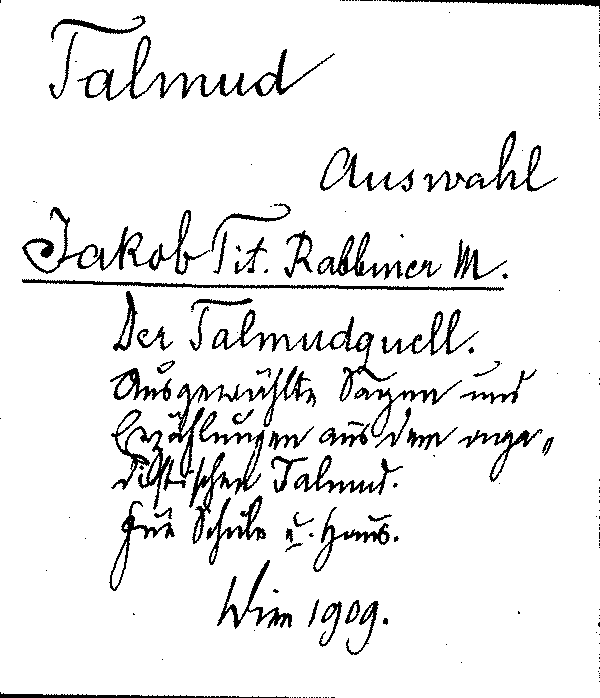 Talmud
Auswahl
Jakob Tit. Rabbiner M.
Der Talmudquell.
Ausgewählte Sagen und
Erzählungen aus dem aga„
distischen Talmud.
Für Schule u. Haus.
Wien 1909.